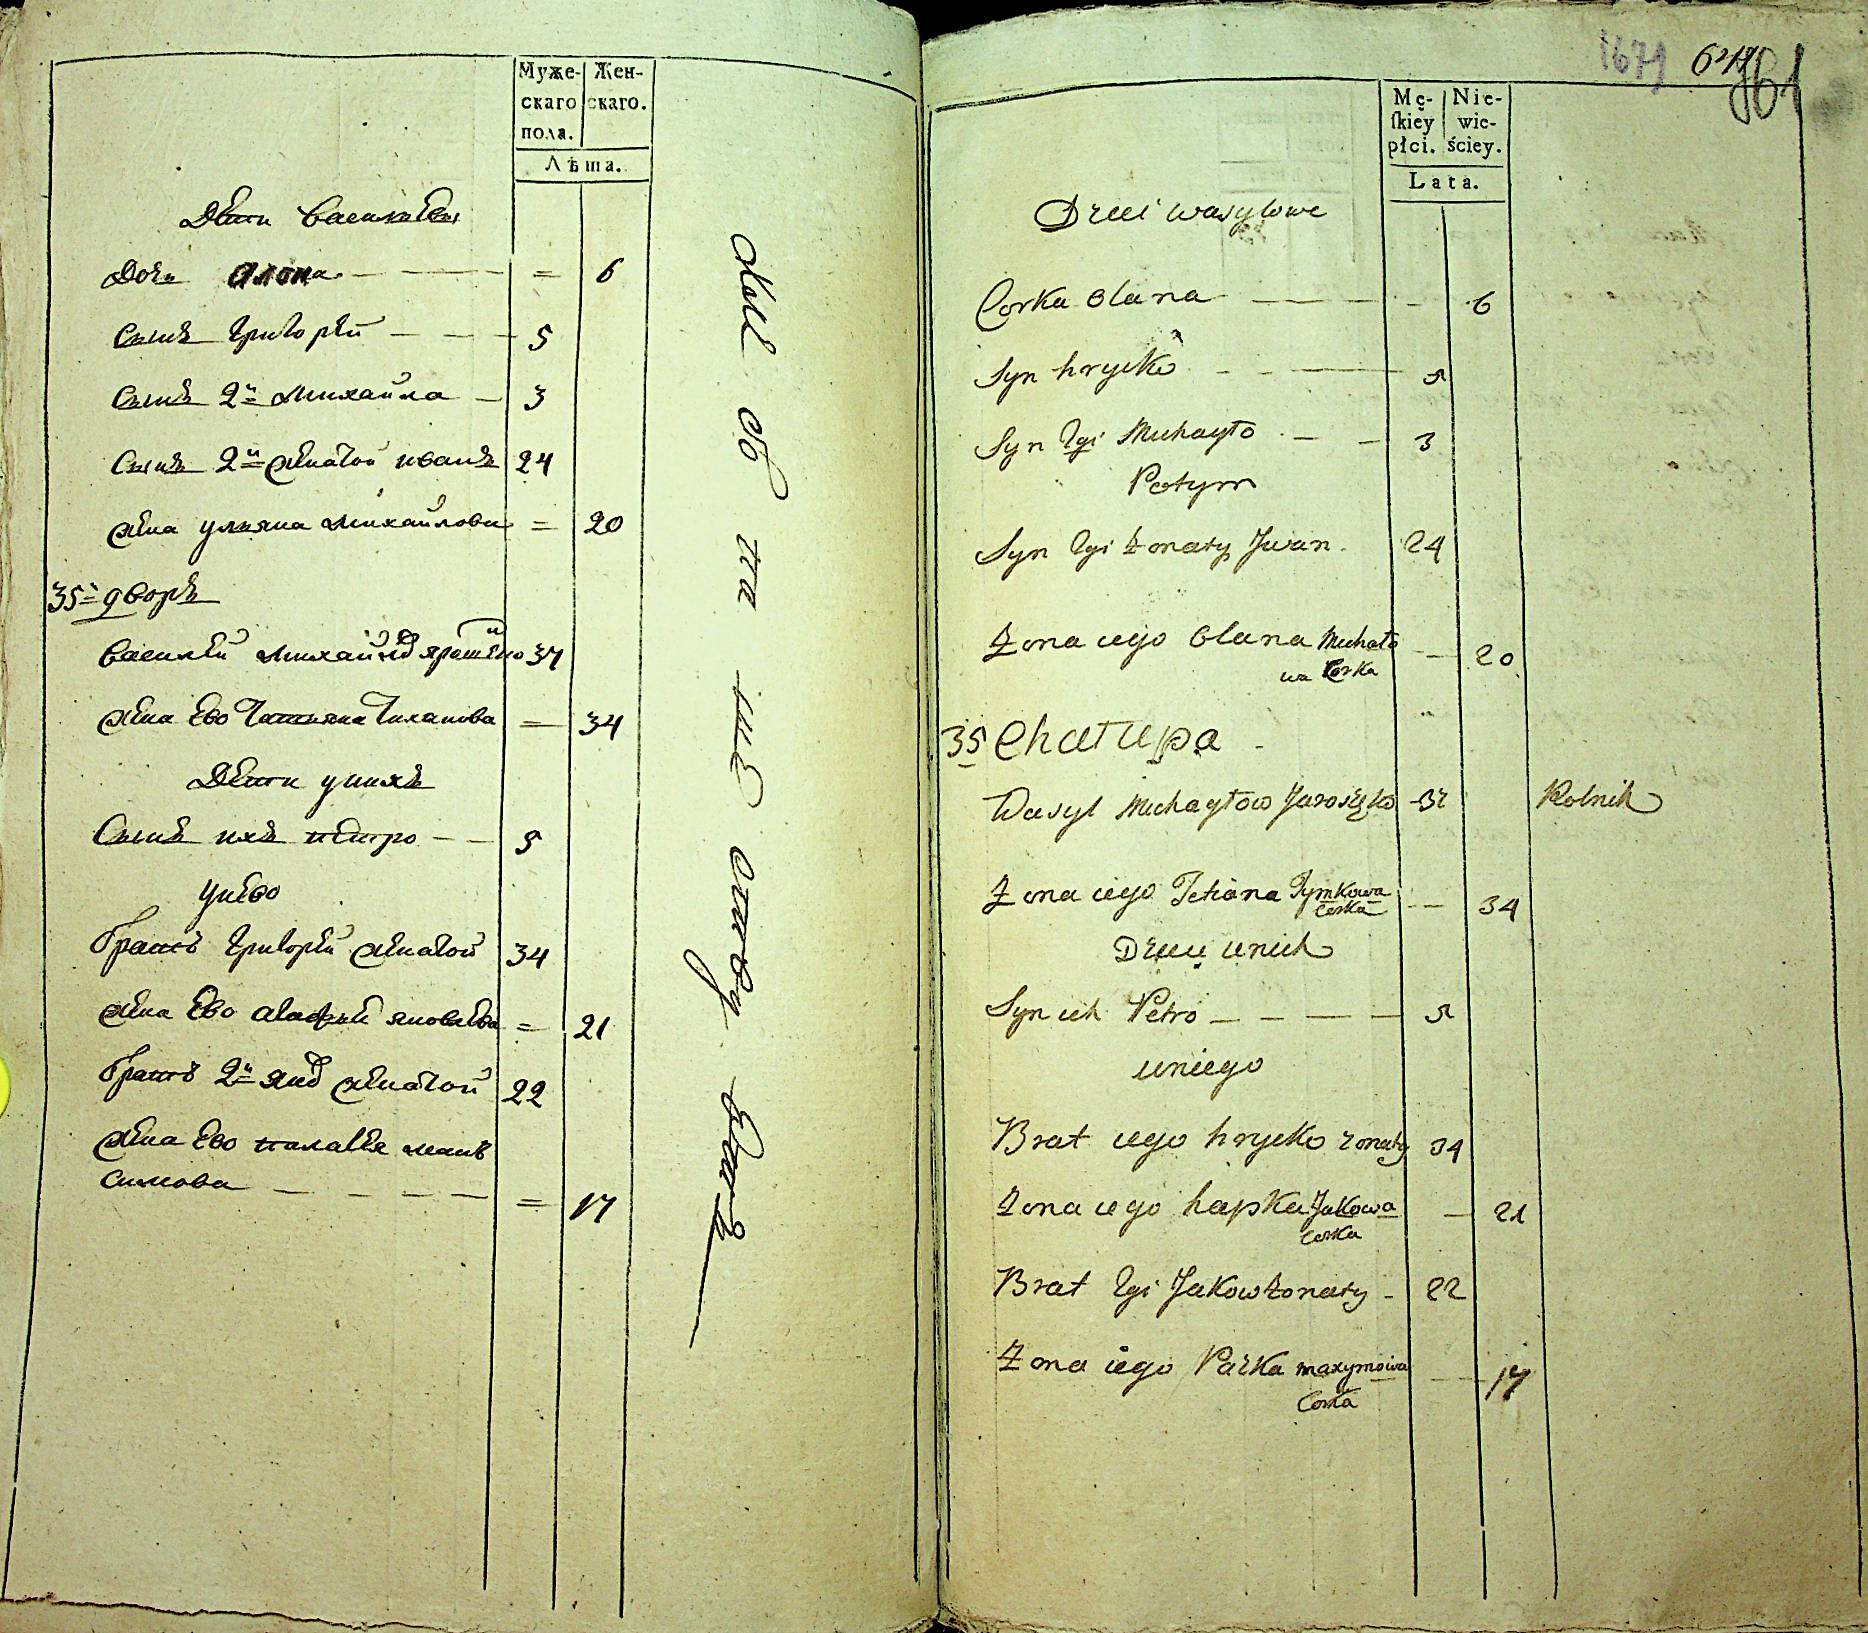 Муже-
скаго
пола.
Жен-
скаго.
Лѣта.
Дѣти Василѣвы
дочь Алона — — = 6
Сынъ Григорѣй — — 5
Сынъ 2й Михайла — 3
Сынъ 2й женатой иванъ 24
жена ульяна Михайлова = 20
35й дворъ
Василѣй Михайловъ Ярошенко 37
жена Ево Татьяна Тиханова — 34
Дѣти унихъ
Сынъ ихъ петро — — 5
Унево
братъ Григорѣй женатой 34
жена Ево яковлѣва = 21
братъ 2й женатой 22
жена Ево палагѣя макъ
симова — — — — = 17
1679
641
861
Mę-
ſkiey
płci.
Nie-
wie-
ściey.
Lata.
Dzieci Wasylowe
Corka Olana — — — — 6
Syn hryćko — — 5
Syn 2gi Michayło — — 3
Potym
Syn 2gi żonaty Jwan 24
Żona iego Olana Michało
wa Corka — 20
35 Chałupa
Wasyl Michayłow Jaroszęko 37 Rolnik
Żona iego Tetiana Tymkowa
Corka — 34
Dzieci unich
Syn ich Petro — — — — 5
uniego
Brat iego hryćko żonaty 34
Żona iego hapka Jakowa
Corka — 21
Brat 2gi Jakow żonaty — 22
Żona iego Paźka maxymowa
Corka — 17